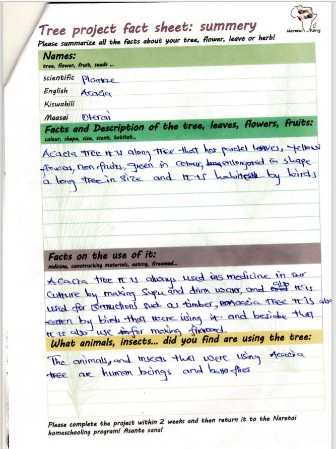 Tree project fact sheet: summery
Please summarize all the facts about your tree, flower, leave or herb!
Names:
tree, flower, fruit, seeds ...
scientific Plantae
English Acacia
Kiswahili
Maasai Olerai
Facts and Description of the tree, leaves, flowers, fruits:
colour, shape, size, scent, habitat...
Acacia tree it is along tree that has leaves, yellow
flowers, non-fruits, green in colour, in shape
a long tree in size and it is by birds
Facts on the use of it:
medicine, constructing materials, eating, firewood...
Acacia tree it is always used as medicine in our
culture by making Supu and drink water, and it is
used for constructions such as timber, Acacia tree it is also
by birds that were using it and beside that
it is also use for making firewood.
What animals, insects... did you find are using the tree:
The animals and insects that were using Acacia
tree are human beings and butterflies
Please complete the project within 2 weeks and then return it to the Naretoi
homeschooling program! Asante sana!